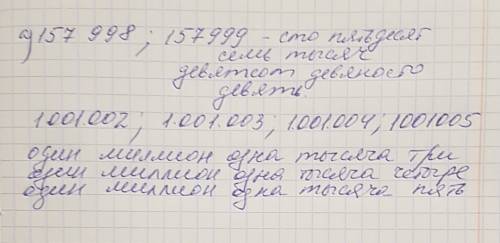 д) 157 998; 157999 - сто пятьдесят
семь тысяч
девятсот девяносто
девять.
1001.002; 1.001.003; 1.001.004; 1001005
один миллион одна тысяча три
один миллион одна тысяча четыре
один миллион одна тысяча пять